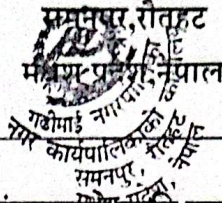 समनपुर, रौतहट
मधेश प्रदेश, नेपाल
गढीमाई नगरपालिका
नगर कार्यपालिकाको
समनपुर, रौतहट
नेपाल